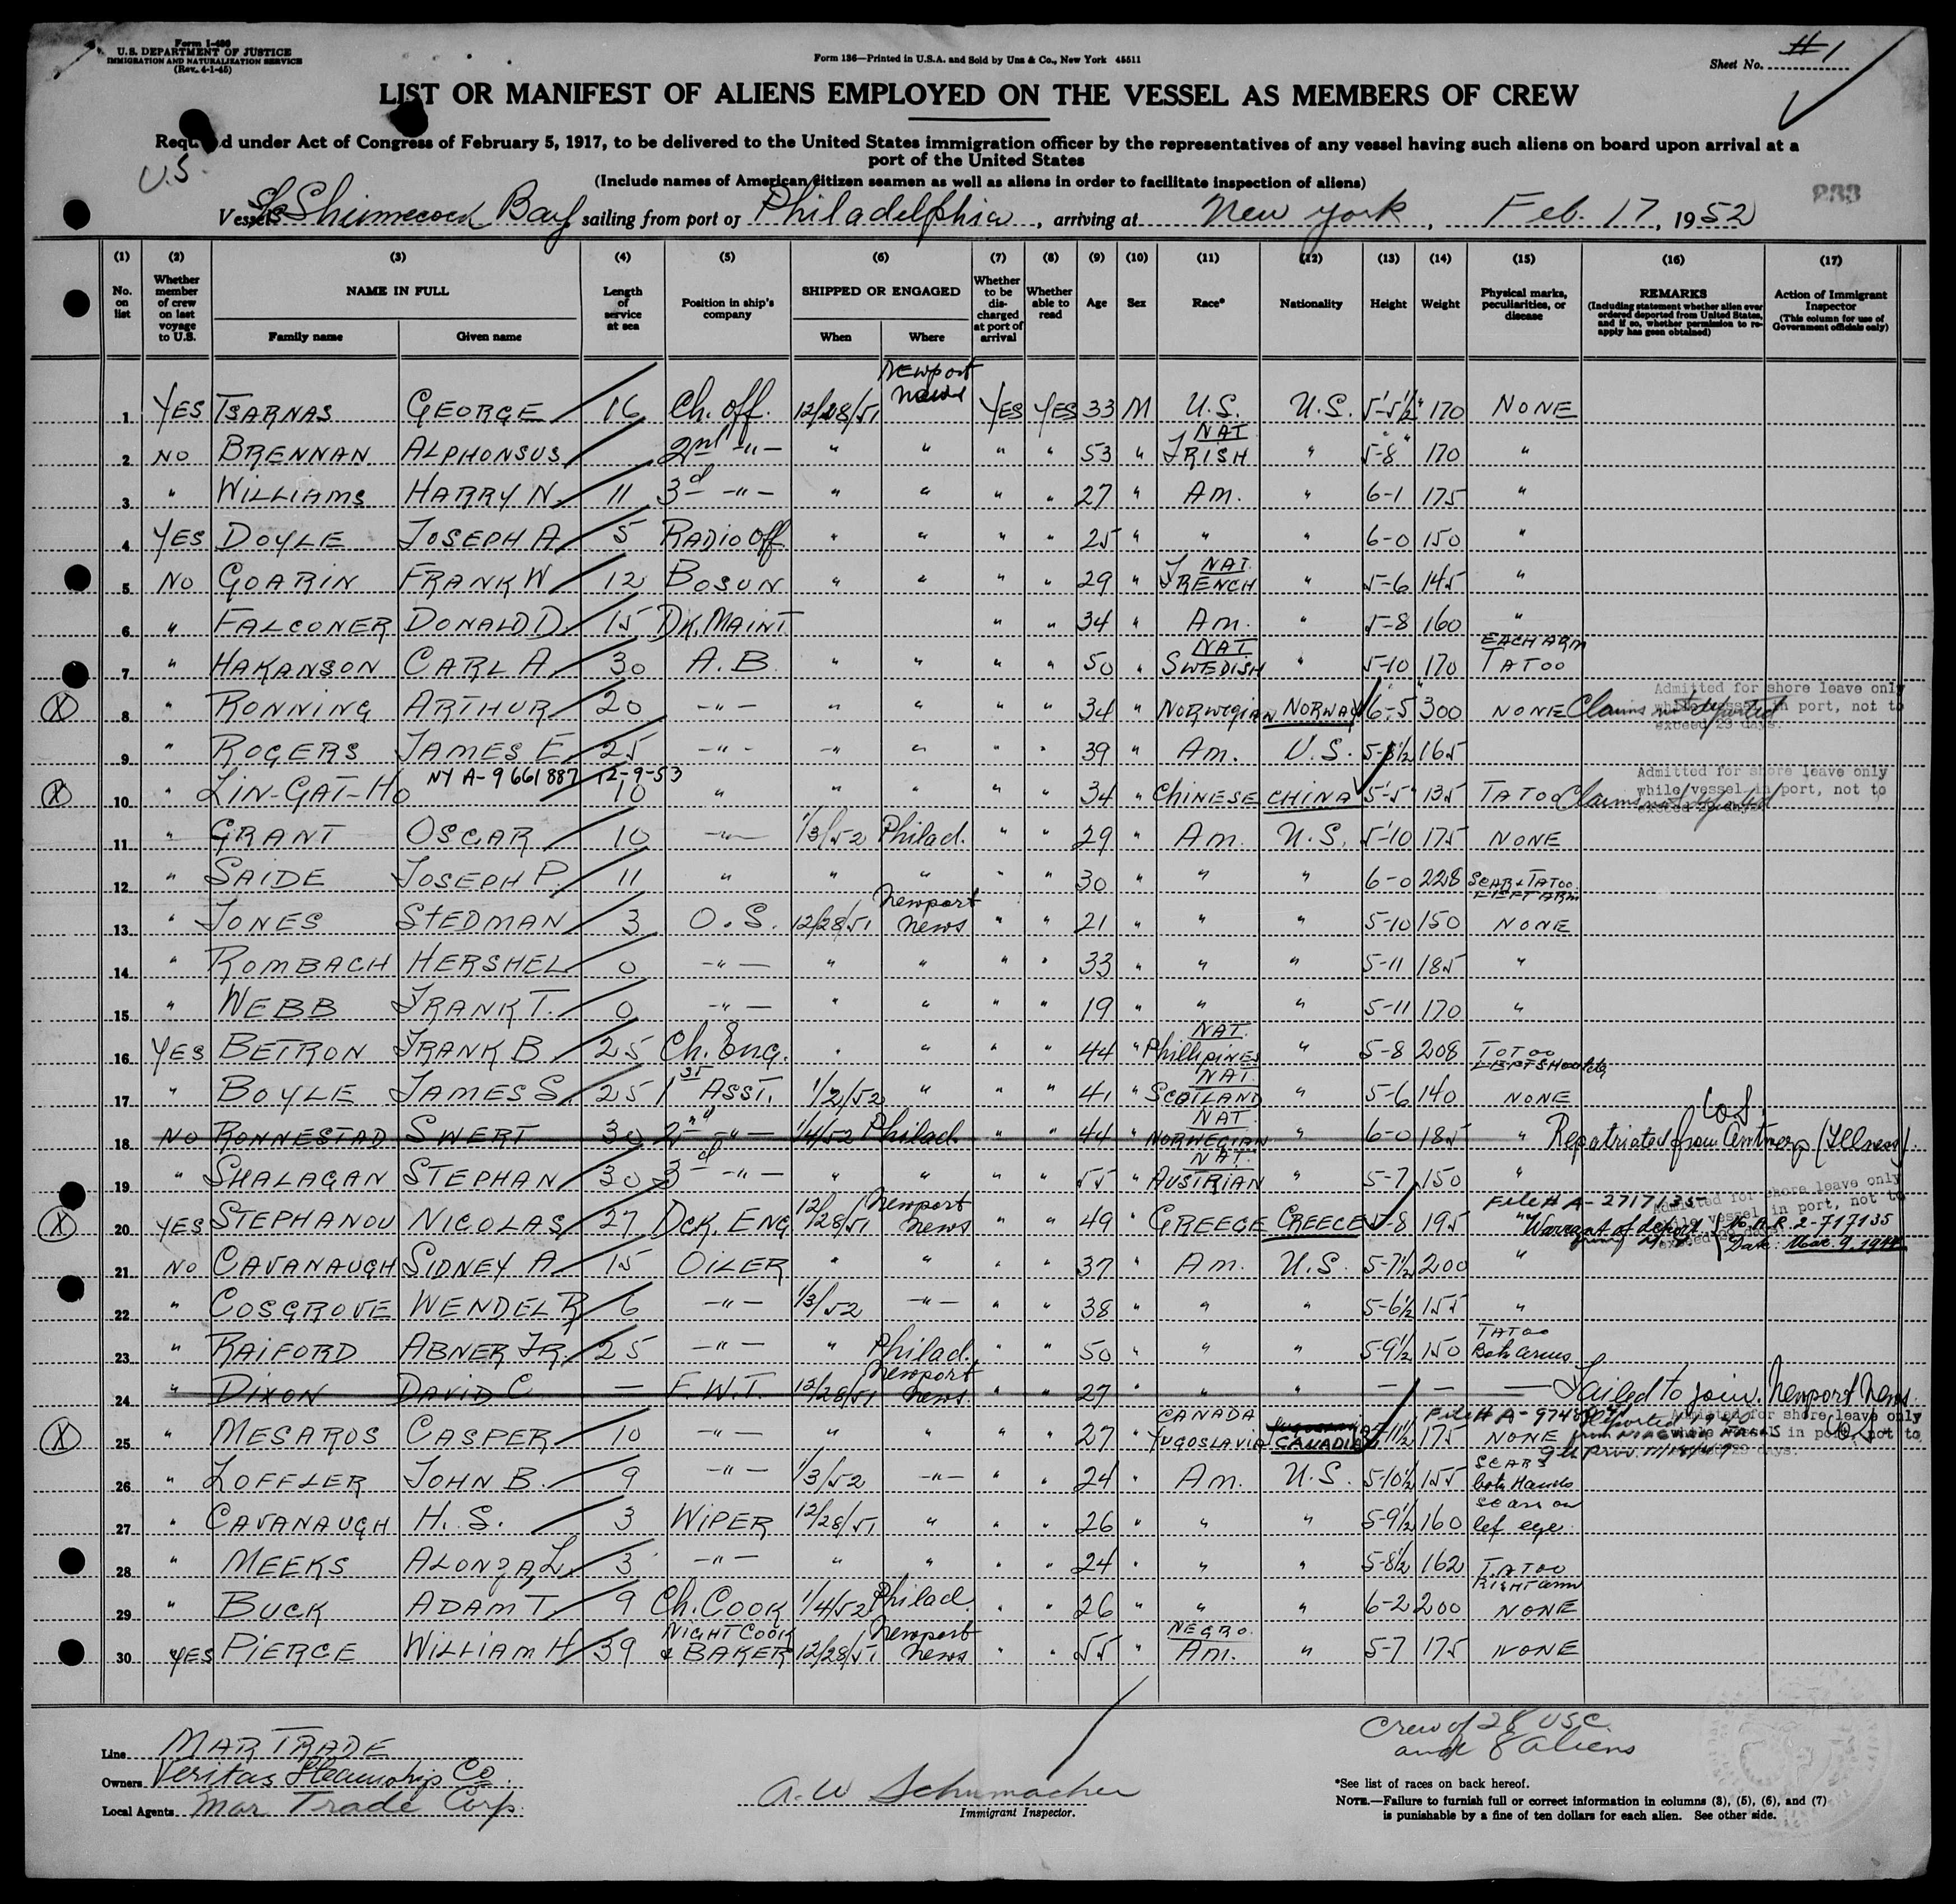 Form I-480
U.S. DEPARTMENT OF JUSTICE
IMMIGRATION AND NATURALIZATION SERVICE
(Rev. 4-1-45)
Form 136—Printed in U.S.A. and Sold by Unz & Co., New York 45511
Sheet No. #1
LIST OR MANIFEST OF ALIENS EMPLOYED ON THE VESSEL AS MEMBERS OF CREW
Required under Act of Congress of February 5, 1917, to be delivered to the United States immigration officer by the representatives of any vessel having such aliens on board upon arrival at a
port of the United States
U.S.
(Include names of American citizen seamen as well as aliens in order to facilitate inspection of aliens)
Vessel SS Shinnecock Bay, sailing from port of Philadelphia, arriving at New York, Feb. 17, 1952
(1) (2) (3) (4) (5) (6) (7) (8) (9) (10) (11) (12) (13) (14) (15) (16) (17)
No. on list
Whether member of crew on last voyage to U.S.
NAME IN FULL
Family name Given name
Length of service at sea
Position in ship's company
SHIPPED OR ENGAGED
When Where
Whether to be discharged at port of arrival
Whether able to read
Age
Sex
Race*
Nationality
Height
Weight
Physical marks, peculiarities, or disease
REMARKS
(Including statement whether alien ever ordered deported from United States, and if so, whether permission to reapply has been obtained)
Action of Immigrant Inspector
(This column for use of Government officials only)
1 YES TSARNAS GEORGE 16 Ch. Off. 12/28/51 Newport News YES YES 33 M U.S. U.S. 5'-5½" 170 NONE
2 NO BRENNAN ALPHONSUS 2nd -"- " " " " 53 " NAT IRISH " 5-8 170 "
3 " WILLIAMS HARRY N. 11 3d -"- " " " " 27 " Am. " 6-1 175 "
4 YES DOYLE JOSEPH A 5 RADIO Off. " " " " 25 " " " 6-0 150 "
5 NO GOARIN FRANK W 12 BOSUN " " " " 29 " NAT. FRENCH " 5-6 145 "
6 " FALCONER DONALD D. 15 DK. MAINT. " " 34 " Am. " 5-8 160 "
7 " HAKANSON CARL A. 30 A.B. " " " " 50 " NAT. SWEDISH " 5-10 170 EACH ARM TATOO
8 " RONNING ARTHUR 20 -"- " " " " 34 " NORWEGIAN NORWAY 6-5 300 NONE Claims not deported
Admitted for shore leave only
while vessel in port, not to
exceed 29 days.
9 " ROGERS JAMES E. 25 -"- -"- " " " 39 " Am. U.S. 5-8½ 165
10 " LIN-GAT-HO NY A-9661887 12-9-53 10 " " " " " 34 " CHINESE CHINA 5'-5" 135 TATOO Claims not deported
Admitted for shore leave only
while vessel in port, not to
exceed 29 days.
11 " GRANT OSCAR 10 -"- 1/3/52 Philad. " " 29 " Am. U.S. 5-10 175 NONE
12 " SAIDE JOSEPH P. 11 " " " " " 30 " " " 6-0 228 SCAR & TATOO LEFT ARM
13 " JONES STEDMAN 3 O.S. 12/28/51 Newport News " " 21 " " " 5-10 150 NONE
14 " ROMBACH HERSHEL 0 -"- " " " " 33 " " " 5-11 185 "
15 " WEBB FRANK T. 0 -"- " " " " 19 " " " 5-11 170 "
16 YES BETRON FRANK B. 25 Ch. Eng. " " " " 44 " NAT. PhilliPINES " 5-8 208 TOTOO LEFT SHoulder
17 " BOYLE JAMES S. 25 1st ASST. 1/2/52 " " " 41 " NAT. SCOTLAND " 5-6 140 NONE
18 NO RONNESTAD SWERT 30 2nd -"- 1/4/52 Philad. " " 44 " NAT NORWEGIAN " 6-0 185 " Repatriated from Antwerp (Illness)
19 " SHALAGAN STEPHAN 30 3d -"- " " " " 55 " NAT. AUSTRIAN " 5-7 150 "
20 YES STEPHANOU NICOLAS 27 DCK. ENG 12/28/51 Newport News " " 49 " GREECE GREECE 5-8 195 " File # A-2717135
Warrant of deport. from N.Y. No. A.R. 2-717135 Date: Mar. 9, 1944
Admitted for shore leave only
while vessel in port, not to
21 NO CAVANAUGH SIDNEY A. 15 OILER " " " " 37 " Am. U.S. 5-7½ 200 "
22 " COSGROVE WENDEL R 6 -"- 1/3/52 -"- " " 38 " " " 5-6½ 155 "
23 " RAIFORD ABNER JR. 25 -"- " Philad. " " 50 " " " 5-9½ 150 TATOO Both arms
24 " DIXON DAVID C — F.W.T. 12/28/51 Newport News " " 27 " " " — — — Failed to join. Newport News.
25 " MESAROS CASPER 10 -"- " " " " 27 " CANADA YUGOSLAVIA CANADIAN 5-11½ 175 NONE
Admitted for shore leave only
while vessel in port, not to
exceed 29 days.
26 " LOFFLER JOHN B. 9 -"- 1/3/52 -"- " " 24 " Am. U.S. 5-10½ 155 SCARS both Hands
27 " CAVANAUGH H.S. 3 WIPER 12/28/51 " " " 26 " " " 5-9½ 160 scar on lef eye.
28 " MEEKS ALONZA, L. 3 -"- " " " " 24 " " " 5-8½ 162 TATOO RIGHT arm
29 " BUCK ADAM T. 9 Ch. COOK 1/4/52 Philad. " " 26 " " " 6-2 200 NONE
30 YES PIERCE WILLIAM H. 39 NIGHT COOK & BAKER 12/28/51 Newport News " " 55 " NEGRO. Am. " 5-7 175 NONE
Crew of 28 USC
and 8 aliens
Line MAR TRADE
Owners Veritas Steamship Co.
Local Agents Mar Trade Corp.
A.W. Schumacher
Immigrant Inspector.
*See list of races on back hereof.
NOTE.—Failure to furnish full or correct information in columns (3), (5), (6), and (7)
is punishable by a fine of ten dollars for each alien. See other side.